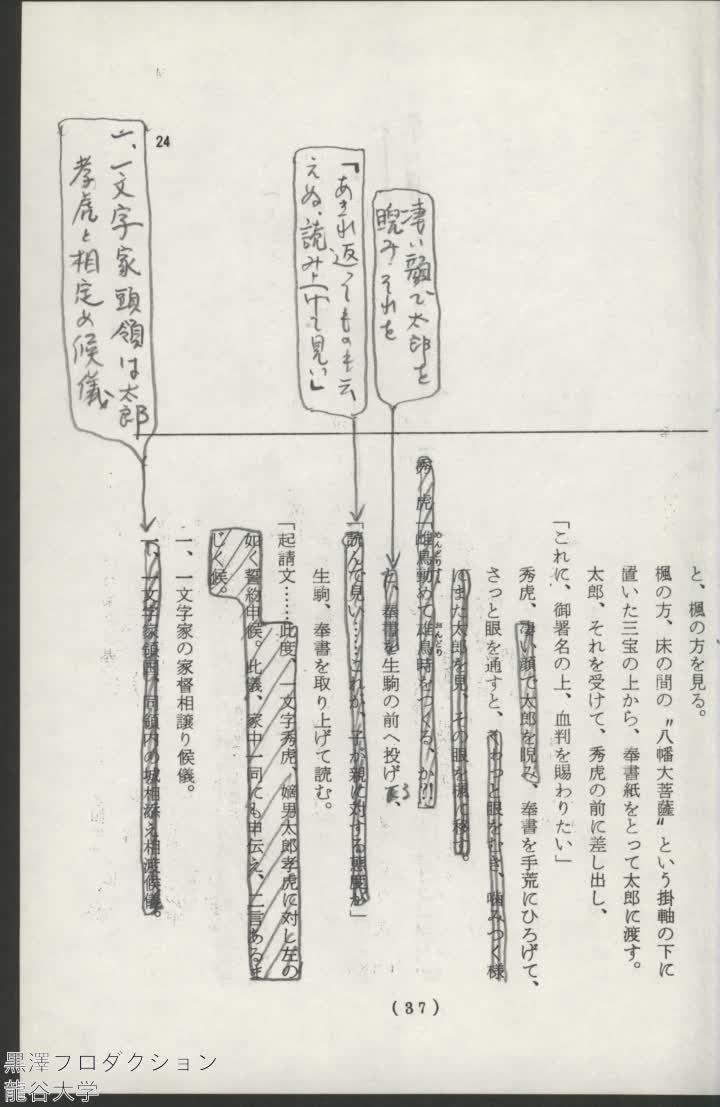 と、楓の方を見る。
楓の方、床の間の〝八幡大菩薩〟という掛軸の下に
置いた三宝の上から、奉書紙をとって太郎に渡す。
太郎、それを受けて、秀虎の前に差し出し、
「これに、御署名の上、血判を賜わりたい」
秀虎、凄い顔で太郎を睨み、奉書を手荒にひろげて、
さっと眼を通すと、くわっと眼をむき、噛みつく様
にまた太郎を見、その眼を楓に移す。
秀　虎「雌鳥勧めて雄鳥時をつくる、か⁈
めんどり
おんどり
と、奉書を生駒の前へ投げ、
「読んで見い……これが、子が親に対する態度か」
生駒、奉書を取り上げて読む。
「起請文……此度、一文字秀虎、嫡男太郎孝虎に対し左の
如く誓約申候。此儀、家中一同にも申伝え、二言あるま
じく候。
一、一文字家の家督相譲り候儀。
一、一文字家領国、同領内の城相添え相渡候儀。
凄い顔で太郎を
睨み、それを
「あきれ返ってものも云
えぬ、読み上げて見い」
24
一、一文字家頭領は太郎
孝虎と相定め候儀
(37)
黒澤プロダクション
龍谷大学